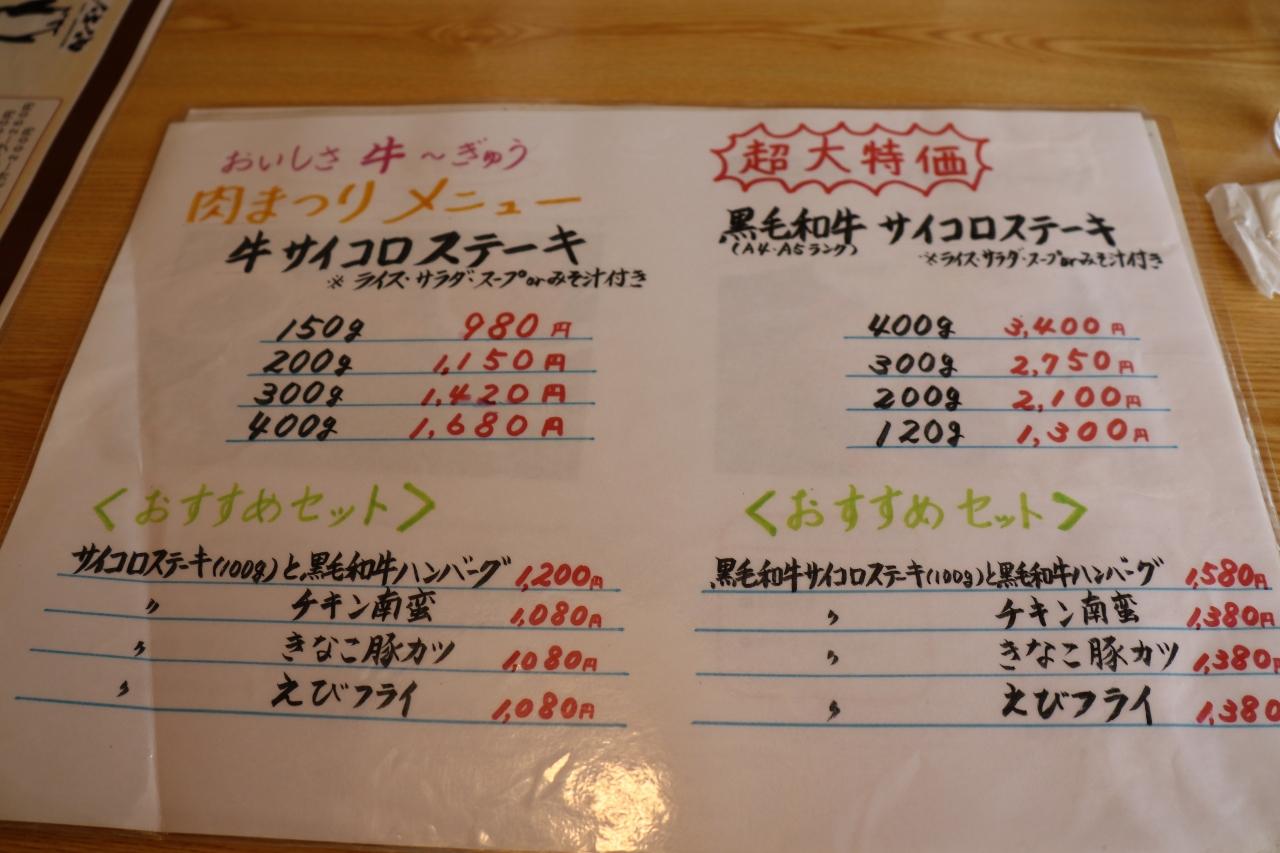 おいしさ 牛～ぎゅう
肉まつりメニュー
牛サイコロステーキ
※ライス・サラダ・スープorみそ汁付き
150g 980円
200g 1,150円
300g 1,420円
400g 1,680円
<おすすめセット>
サイコロステーキ(100g)と黒毛和牛ハンバーグ 1,200円
〃 チキン南蛮 1,080円
〃 きなこ豚カツ 1,080円
〃 えびフライ 1,080円
超大特価
黒毛和牛 サイコロステーキ
(A4・A5ランク) ※ライス・サラダ・スープorみそ汁付き
400g 3,400円
300g 2,750円
200g 2,100円
120g 1,300円
<おすすめセット>
黒毛和牛サイコロステーキ(100g)と黒毛和牛ハンバーグ 1,580円
〃 チキン南蛮 1,380円
〃 きなこ豚カツ 1,380円
〃 えびフライ 1,380